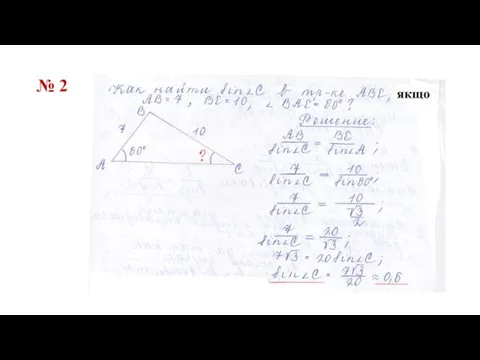 № 2
Как найти sin∠C в тр-ке ABC, якщо
AB = 7, BC = 10, ∠BAC = 80° ?
B
7
10
A
80°
?
C
Решение:
AB/sin∠C = BC/sin∠A ;
7/sin∠C = 10/sin80° ;
7/sin∠C = 10/(√3/2) ;
7/sin∠C = 20/√3 ;
7√3 = 20 sin∠C ;
sin∠C = 7√3/20 ≈ 0,6